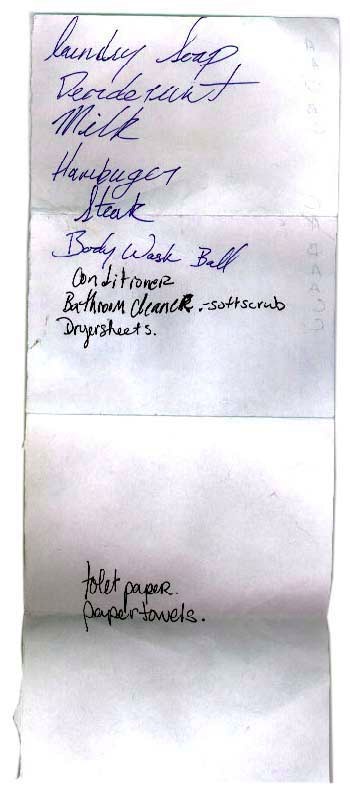 laundry Soap
Deoderant
Milk
Hamburger
Steak
Body Wash Ball
Conditioner
Bathroom cleaner.-softscrub
Dryersheets.
tolet paper.
papertowels.